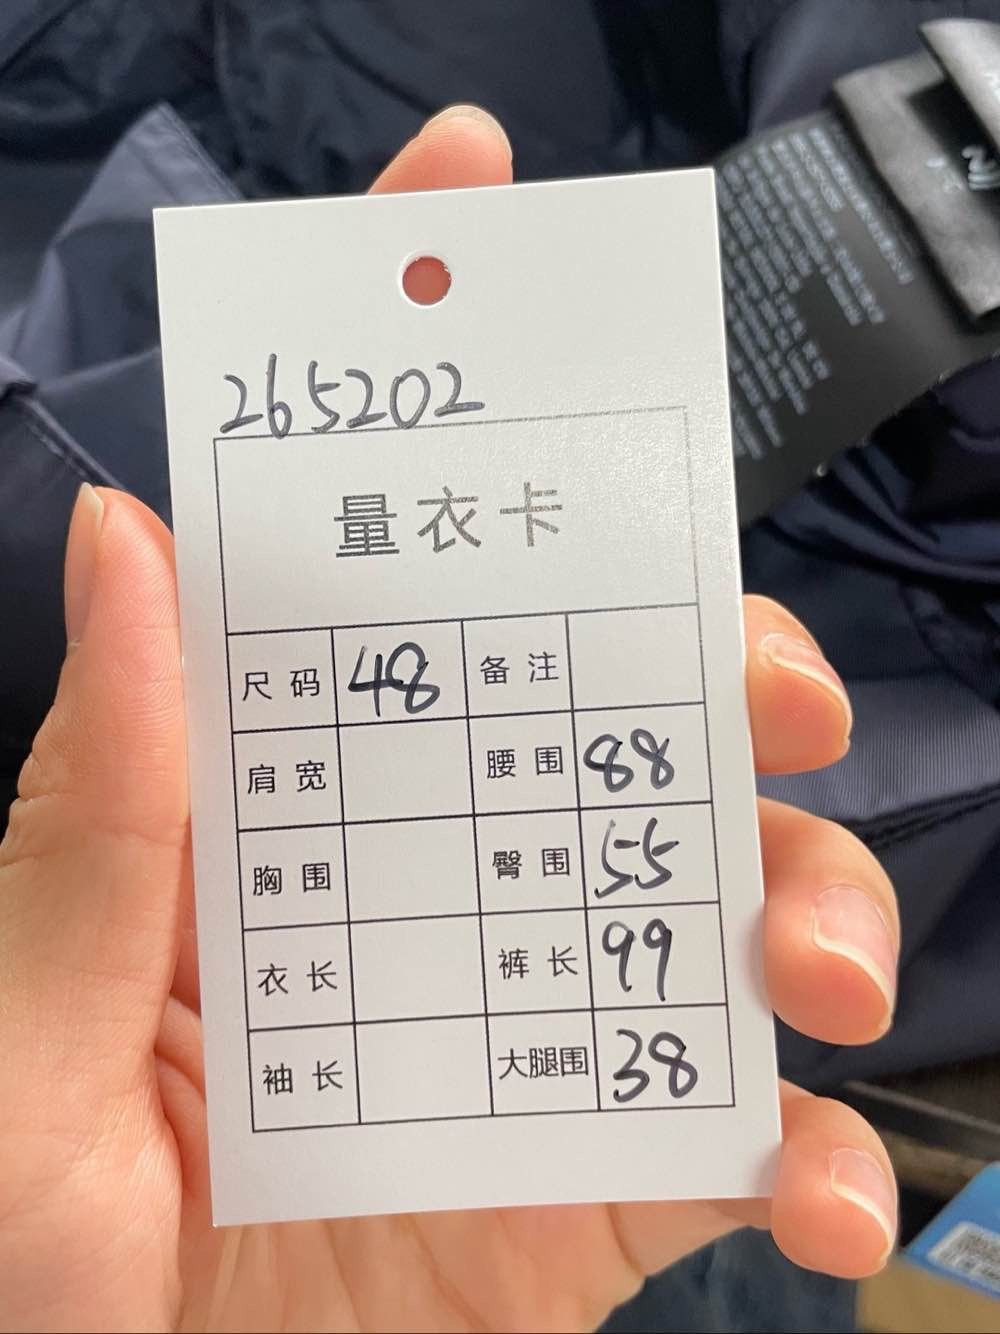 265202
量衣卡
尺码 48 备注
肩宽 腰围 88
胸围 臀围 55
衣长 裤长 99
袖长 大腿围 38